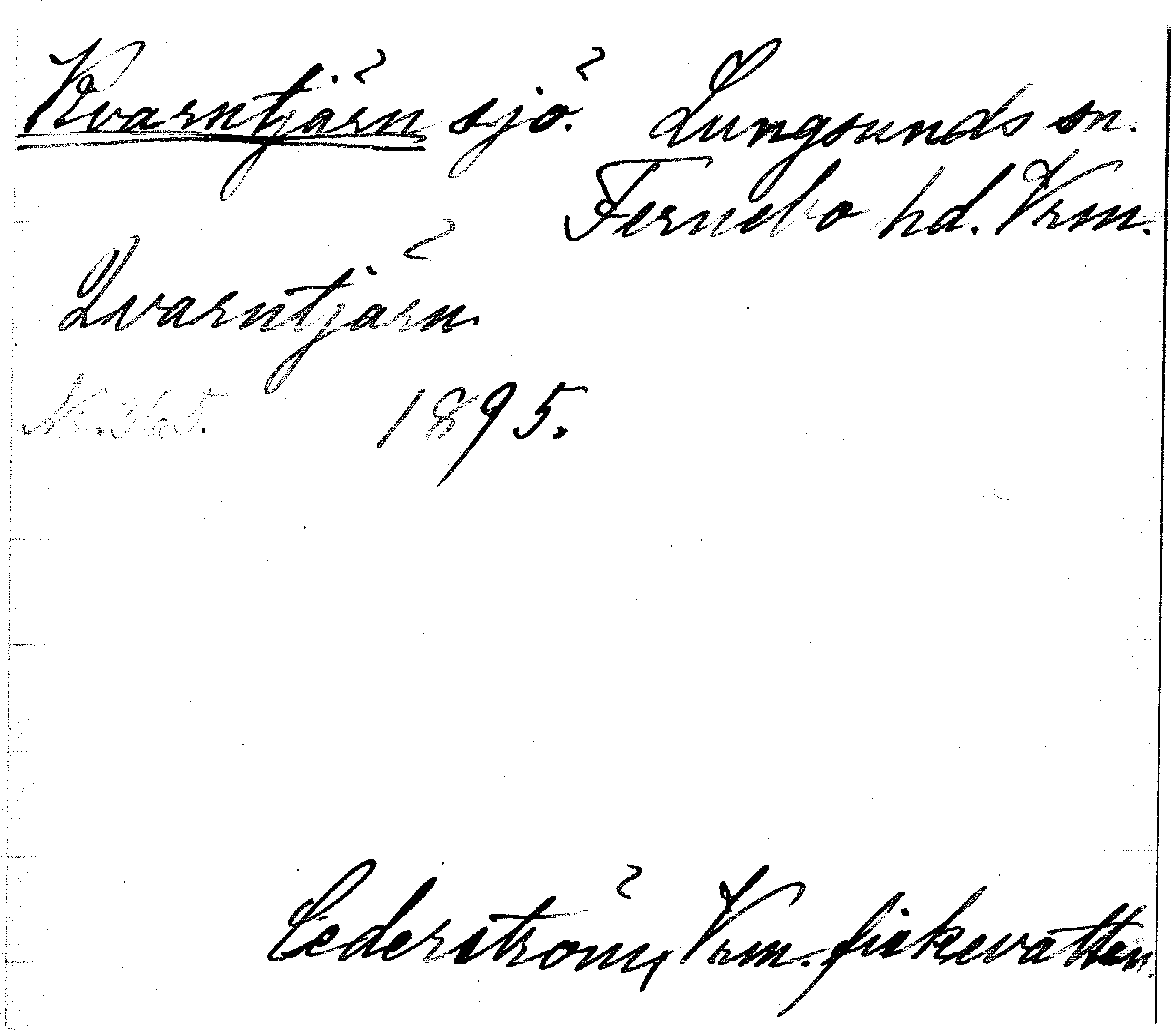 Kvarntjärn sjö. Lungsunds sn.
Fernebo hd. Vrm.
Qvarntjärn
Nr. 365. 1895.
Cederström, Vrm. fiskevatten.